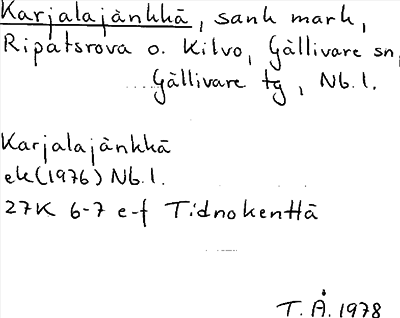 Karjalajänkkä, sank mark,
Ripatsrova o. Kilvo, Gällivare sn,
Gällivare tg, Nb. l.
Karjalajänkkä
ek(1976) Nb. l.
27K 6-7 e-f Tidnokenttä
T. Å. 1978